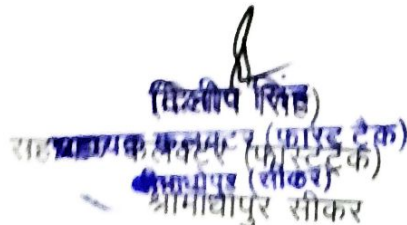 (दिलीप सिंह)
सहायक कलक्टर (फास्ट ट्रैक)
श्रीमाधोपुर (सीकर)
श्रीमाधोपुर सीकर